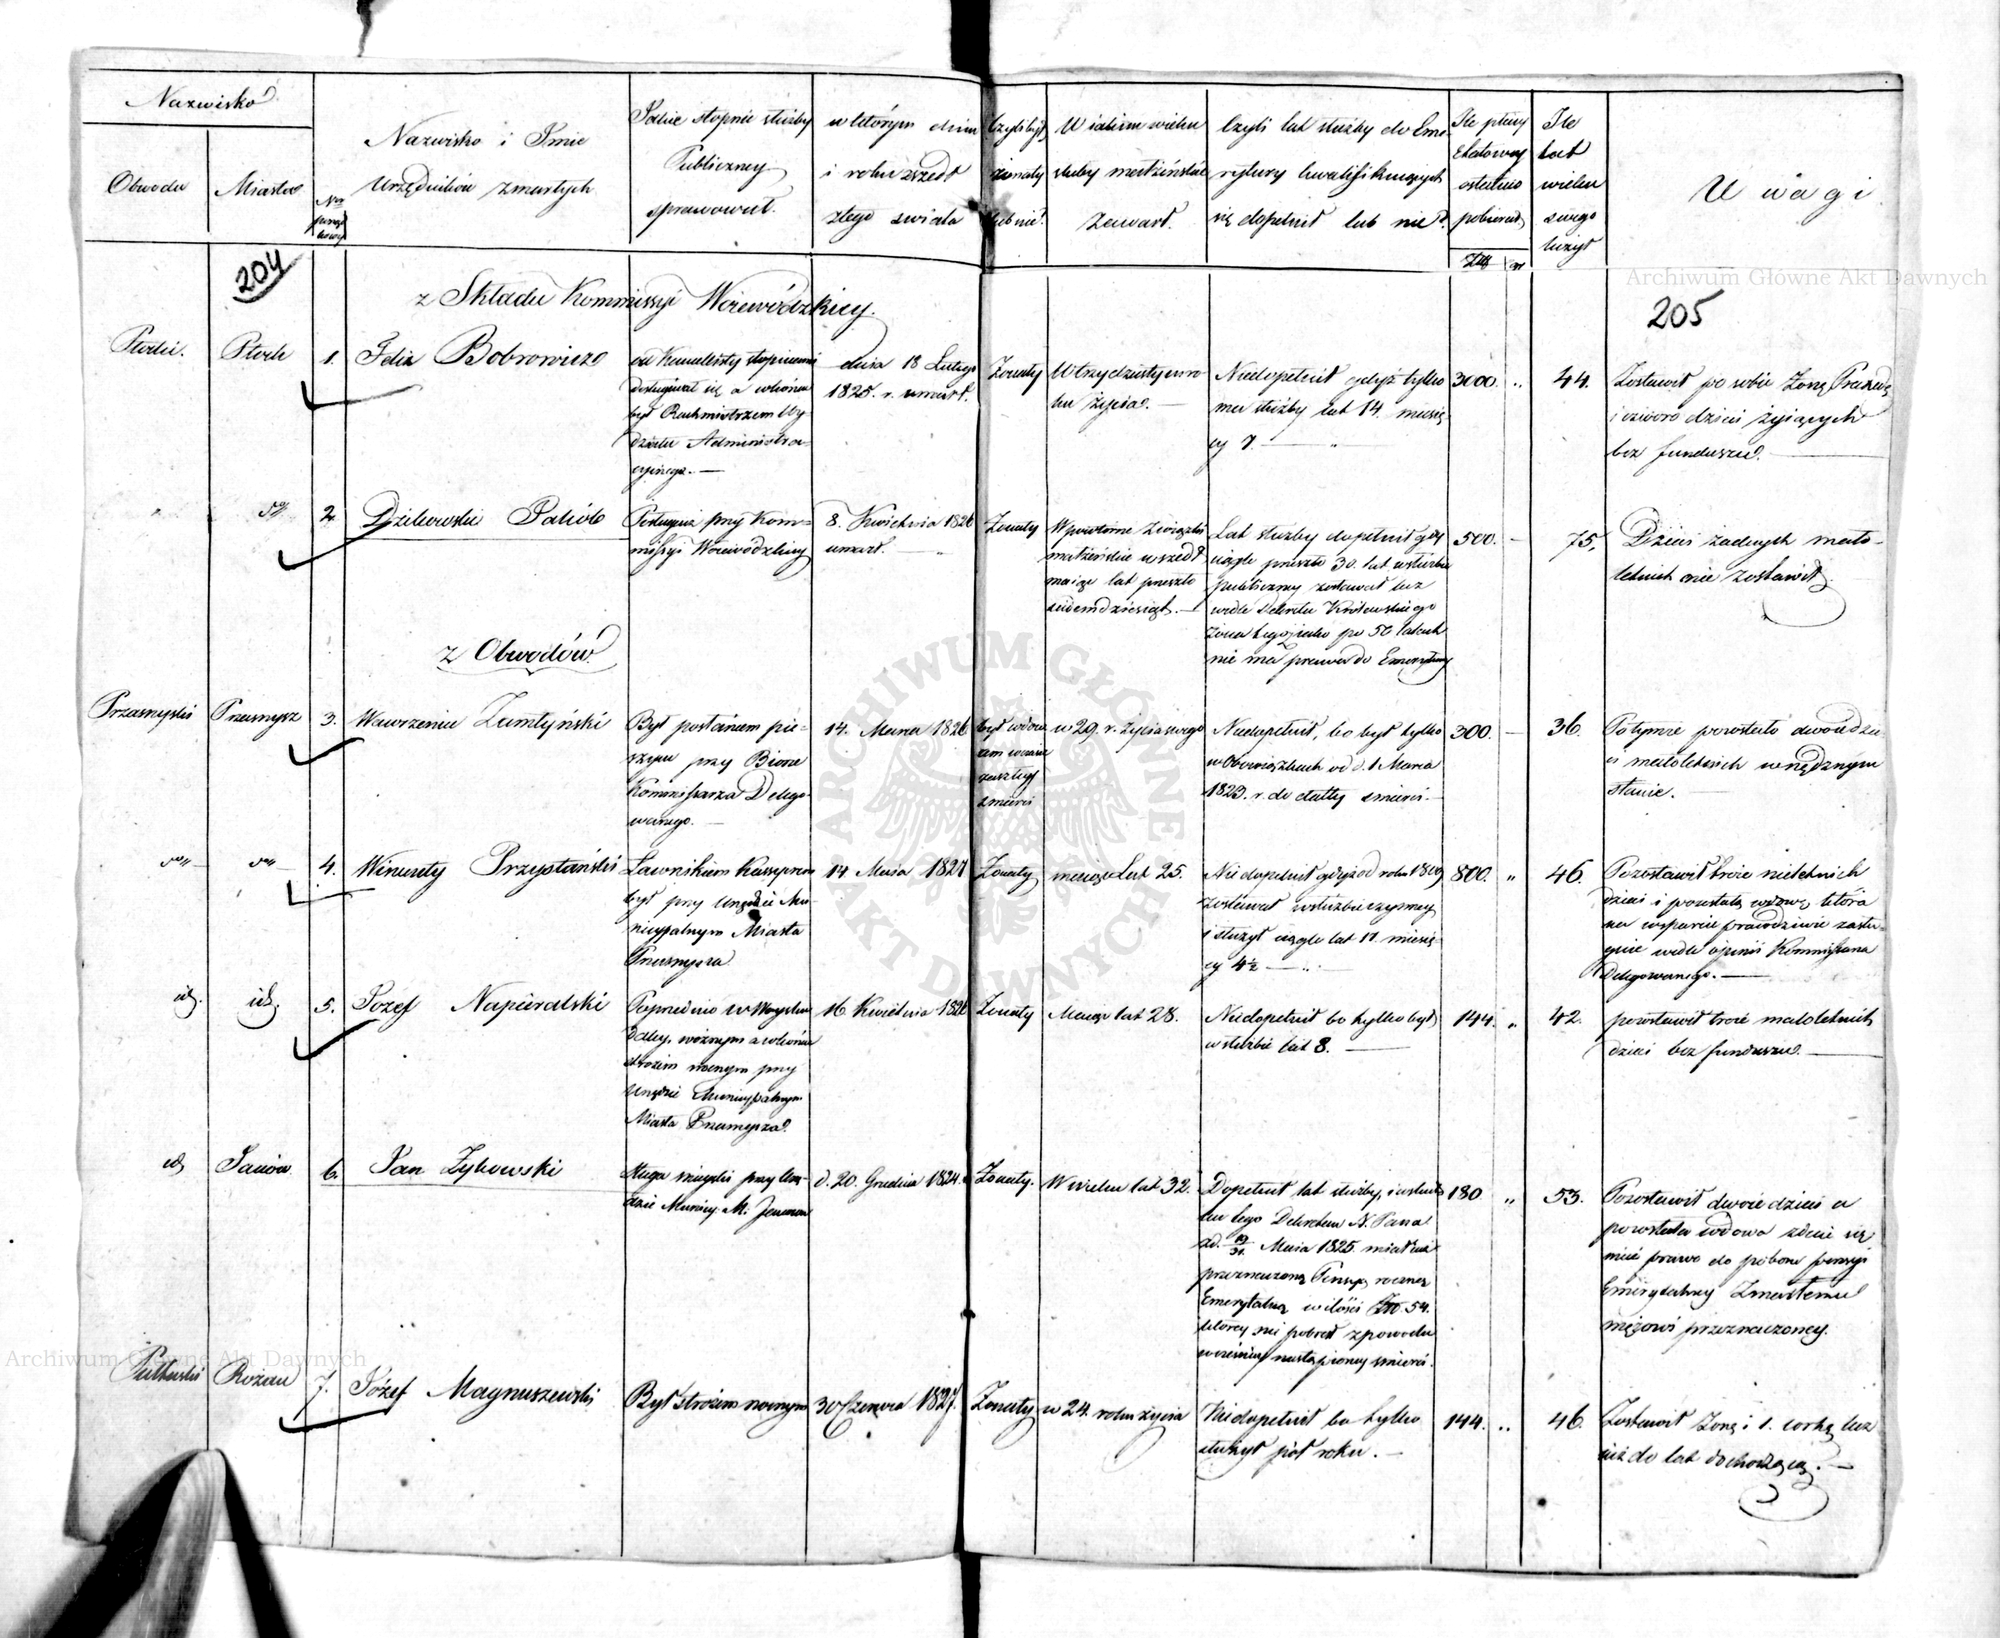 Nazwisko
Obwodu
Miasta
Nro
porząd
kowy
Nazwisko i Imie
Urzędników zmarłych
Jakie stopnie służby
Publiczney
sprawował.
w którym dniu
i roku zszedł
z tego świata
Czyli był
żonaty
lub nie?
W iakim wieku
śluby małżeńskie
zawarł.
Czyli lat służby do Eme-
rytury kwalifikuiących
się dopełnił lub nie?
Ile płacy
Etatowey
ostatnio
pobierał,
Złp
gr
Ile
lat
wieku
swego
liczył
Uwagi
204
205
z Składu Kommissyi Woiewódzkiey.
Płocki.
Płock
1.
Felix Bobrowicz
od Kancellisty stopniami
dosługiwał się a w końcu
był Rachmistrzem Wy-
działu Administra-
cyinego.
dnia 18 Lutego
1825. r. umarł.
Żonaty
W trzydziestym ro-
ku życia.
Niedopełnił gdyż tylko
ma służby lat 14. miesię-
cy 7.
3000.
44.
Zostawił po sobie Żonę
i czworo dzieci żyiących
bez funduszu.
2.
Dzikowski Jakób
Posługacz przy Kom-
missyi Woiewódzkiey
8. Kwietnia 1826
umarł.
Żonaty
W powtorne związki
małżeńskie wszedł
maiąc lat przeszło
siedemdziesiąt.
Lat służby dopełnił gdy
ciągle przeszło 30. lat w służbie
publiczney zostawał lecz
wedle Dekretu Królewskiego
żona tego iako po 50 latach
nie ma prawa do Emerytury
500.
75.
Dzieci żadnych mało-
letnich nie zostawił.
z Obwodów.
Przasnyski
Przasnysz
3.
Wawrzeniec Zumtyński
Był posłańcem pie-
szym przy Biorze
Kommissarza Delego-
wanego.
14. Marca 1826
był wdow-
cem w czasie
zaszłey
śmierci
w 29. r. życia swego
Niedopełnił, bo był tylko
w Obowiązkach od d. 1 Marca
1823. r. do daty śmierci.
300.
36.
Po tymże pozostało dwoie dzie-
ci małoletnich w nędznym
stanie.
4.
Wincenty Przystański
Ławnikiem Kassyerem
był przy Urzędzie Mu-
nicypalnym Miasta
Przasnysza
14 Maia 1827
Żonaty
maiąc Lat 25.
Nie dopełnił gdyż od roku 1809
zostawał w służbie czynney
i służył ciągle lat 17. miesię-
cy 4½
800.
46.
Pozostawił troie nieletnich
dzieci i pozostałą wdowę która
na wsparcie prawdziwie zasłu-
guie wedle opinii Kommissarza
Delegowanego.
id.
id.
5.
Jozef Napieralski
Poprzednio w Woysku
daley. woźnym a w końcu
stróżem nocnym przy
Urzędzie Municypalnym
Miasta Przasnysza.
16 Kwietnia 1826
Żonaty
Maiąc lat 28.
Niedopełnił bo tylko był
w służbie lat 8.
144.
42.
pozostawił troie małoletnich
dzieci bez funduszu.
id
Janów
6.
Jan Żykowski
Sługa mieyski przy Urzę-
dzie Municy: M. Janowa
d. 20. Grudnia 1824.
Żonaty.
W wieku lat 32.
Dopełnił lat służby, i w skut-
ku tego Dekretem N. Pana
z d. 19/31. Maia 1825. miał iuż
przeznaczoną Pensyą roczną
Emerytalną w ilości Złp. 54.
ktorey nie pobrał z powodu
wcześniey nastąpioney śmierci.
180
53.
Pozostawił dwoie dzieci a
pozostała wdowa zdaie się
mieć prawo do poboru pensyi
Emerytalney Zmarłemu
mężowi przeznaczoney.
Pułtuski
Rożan
7.
Józef Magnuszewski
Był stróżem nocnym
30 Czerwca 1827.
Żonaty
w 24. roku życia
Niedopełnił bo tylko
służył pół roku.
144.
46.
Zostawił Żonę i 1. corkę lecz
iuż do lat dochodzącą.
Archiwum Główne Akt Dawnych
Archiwum Główne Akt Dawnych
ARCHIWUM GŁÓWNE AKT DAWNYCH